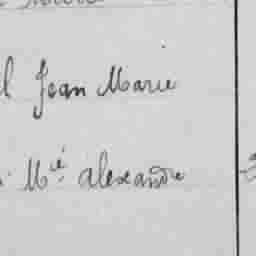 Jean Marie
Mie alexandre